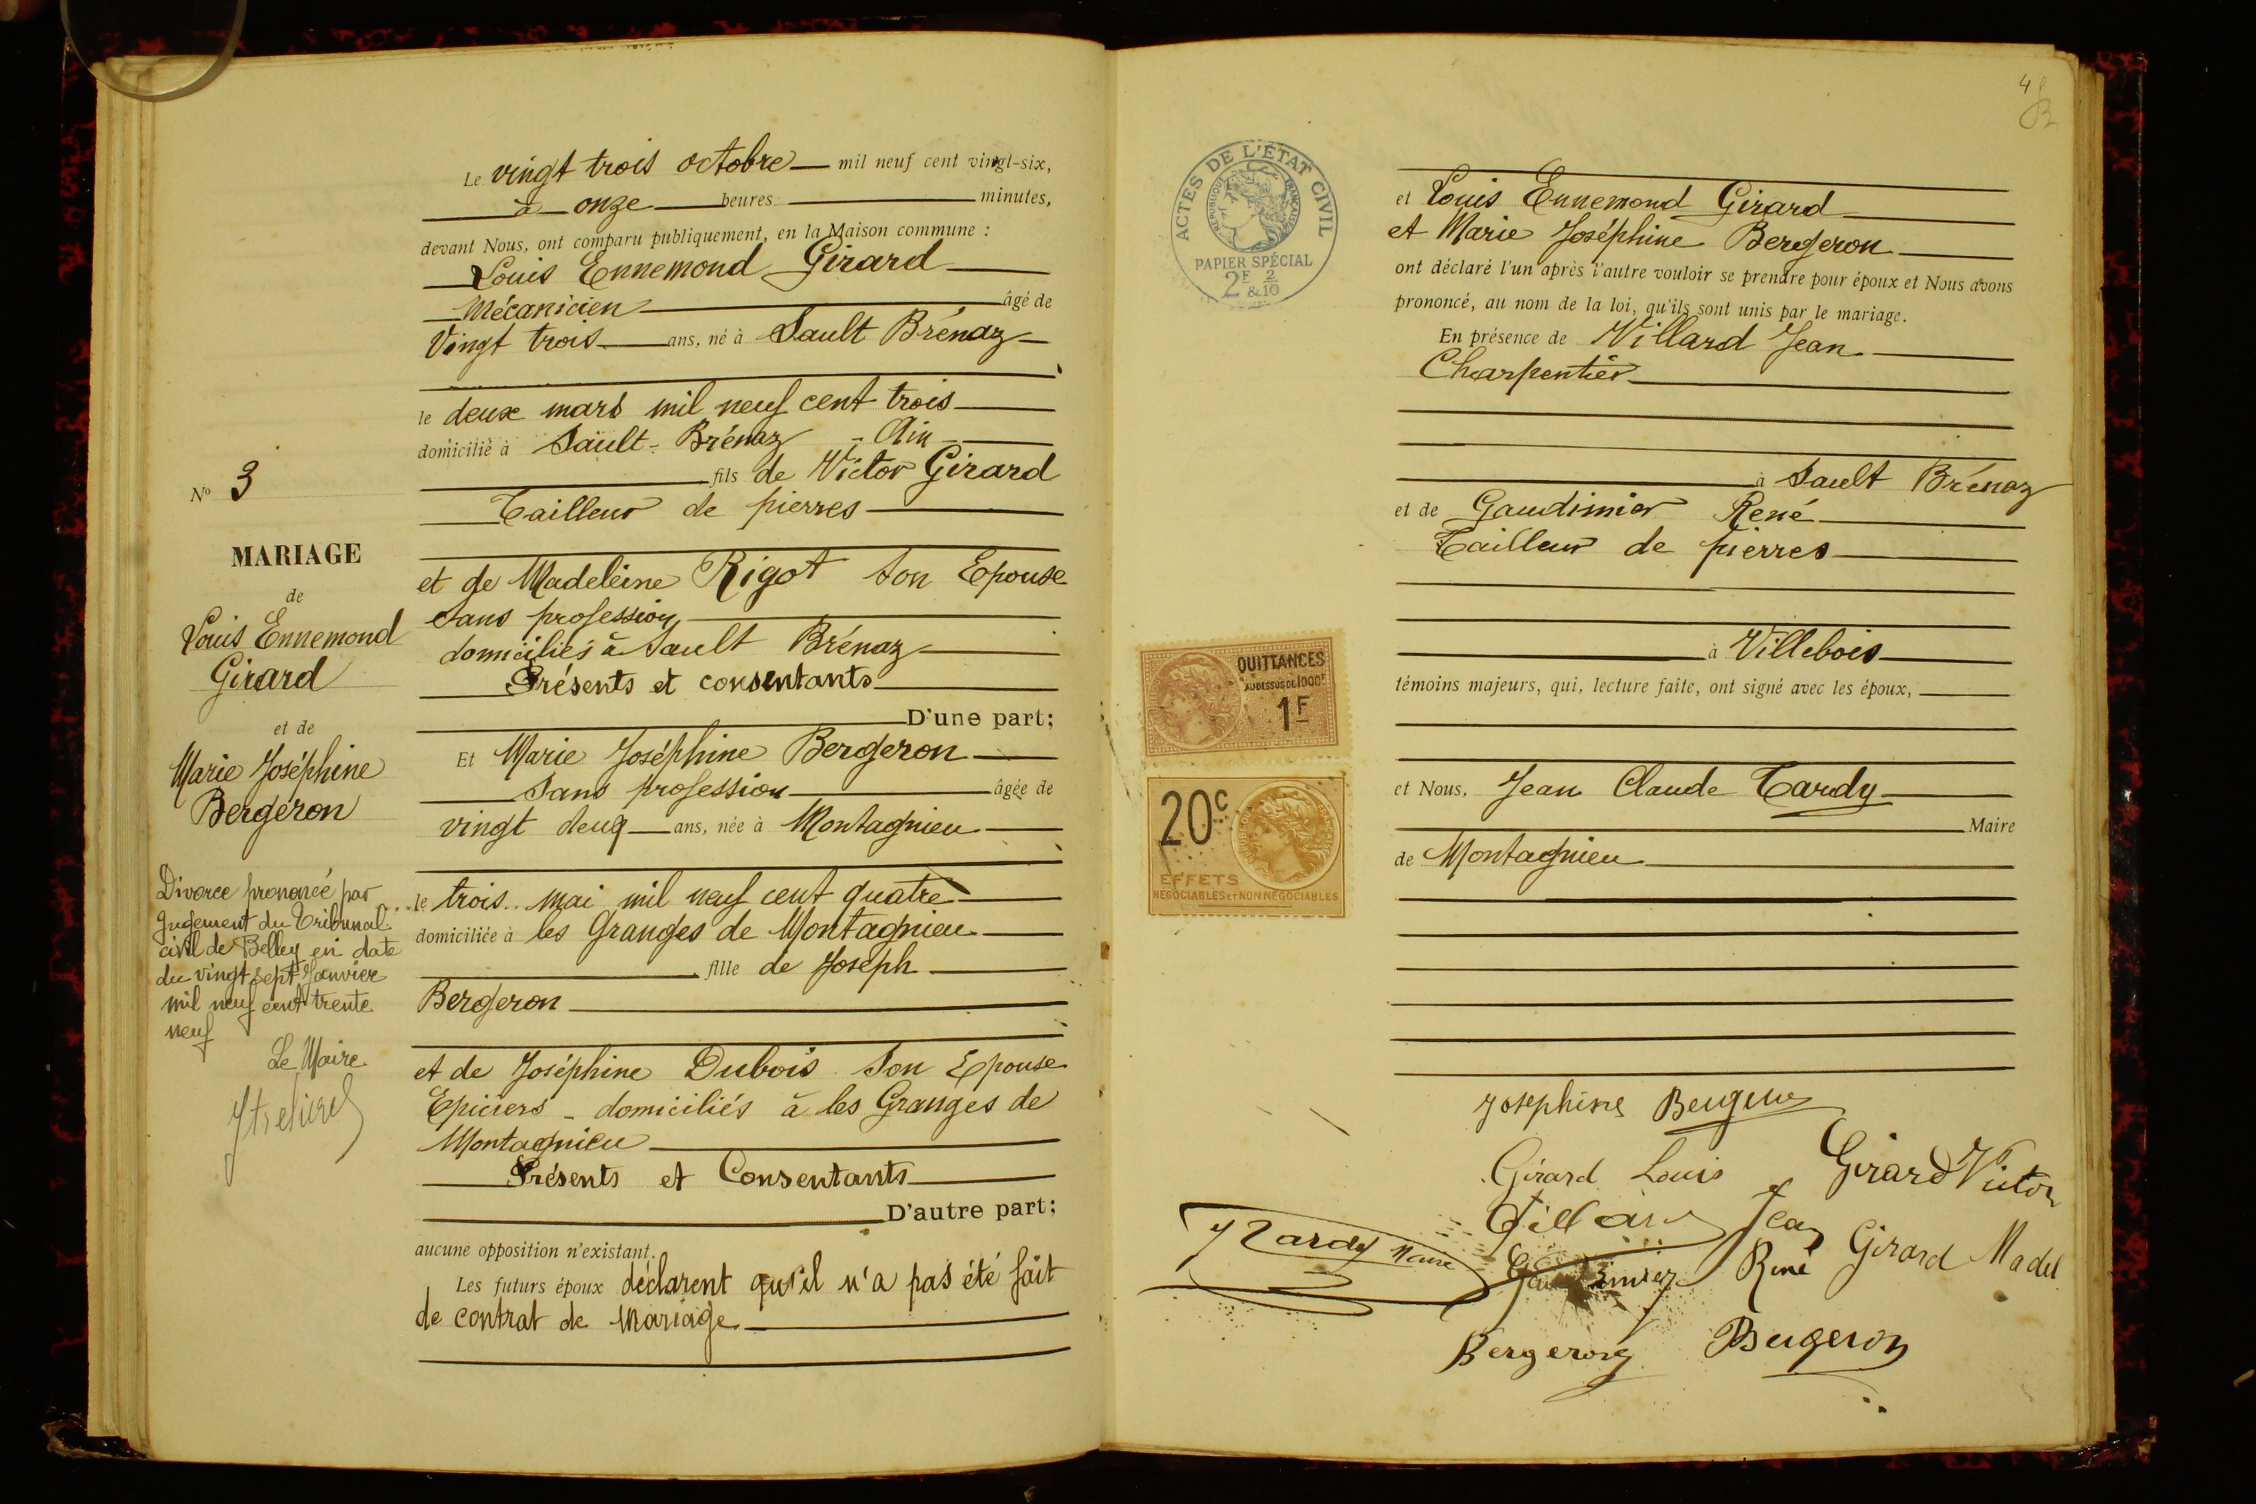 Le vingt trois octobre mil neuf cent vingt-six,
à onze heures minutes,
devant Nous, ont comparu publiquement, en la Maison commune :
Louis Ennemond Girard
Mécanicien âgé de
Vingt trois ans, né à Sault Brénaz
le deux mars mil neuf cent trois
domicilié à Sault-Brénaz - Ain -
fils de Victor Girard
Tailleur de pierres
et de Madeleine Rigot son Epouse
sans profession
domiciliés à Sault Brénaz
Présents et consentants
D'une part;
Et Marie Joséphine Bergeron
Sans profession âgée de
vingt deux ans, née à Montagnieu
le trois mai mil neuf cent quatre
domiciliée à les Granges de Montagnieu
fille de Joseph
Bergeron
et de Joséphine Dubois Son Epouse
Epiciers - domiciliés à les Granges de
Montagnieu
Présents et Consentants
D'autre part;
aucune opposition n'existant.
Les futurs époux déclarent qu'il n'a pas été fait
de contrat de Mariage
N° 3
MARIAGE
de
Louis Ennemond
Girard
et de
Marie Joséphine
Bergeron
Divorce prononcé par
Jugement du Tribunal
civil de Belley en date
du vingt sept Janvier
mil neuf cent trente
neuf
Le Maire
4
ACTES DE L'ÉTAT CIVIL
RÉPUBLIQUE FRANÇAISE
PAPIER SPÉCIAL
2F & 2/10
et Louis Ennemond Girard
et Marie Joséphine Bergeron
ont déclaré l'un après l'autre vouloir se prendre pour époux et Nous avons
prononcé, au nom de la loi, qu'ils sont unis par le mariage.
En présence de Villard Jean
Charpentier
à Sault Brénaz
et de Gaudimier René
Tailleur de pierres
à Villebois
témoins majeurs, qui, lecture faite, ont signé avec les époux,
et Nous, Jean Claude Tardy
Maire
de Montagnieu
QUITTANCES
AU DESSUS DE 1000F
1F
20c
EFFETS
NÉGOCIABLES ET NON NÉGOCIABLES
Josephine Bergeron
Girard Louis
Girard Victor
Villard Jean
Tardy Maire
Gaudimier René
Girard Madel
Bergeron
Bergeron